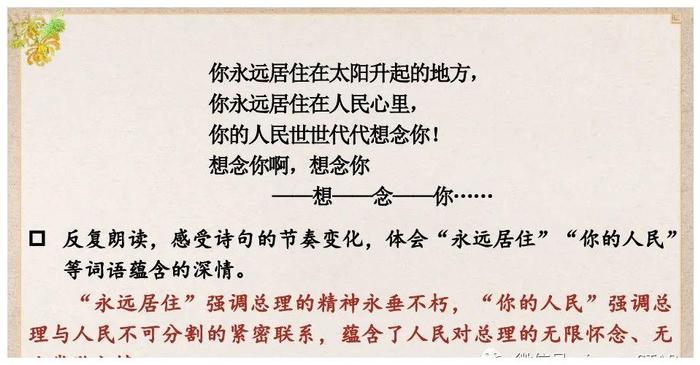 你永远居住在太阳升起的地方，
你永远居住在人民心里，
你的人民世世代代想念你！
想念你啊，想念你
——想——念——你……
反复朗读，感受诗句的节奏变化，体会“永远居住”“你的人民”
等词语蕴含的深情。
“永远居住”强调总理的精神永垂不朽，“你的人民”强调总
理与人民不可分割的紧密联系，蕴含了人民对总理的无限怀念、无